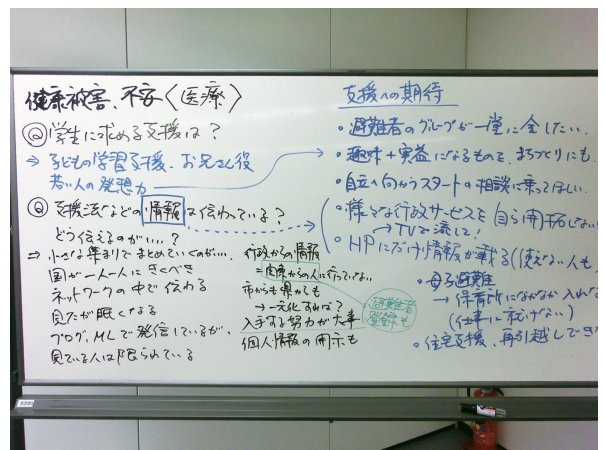 健康被害、不安〈医療〉
Ⓠ学生に求める支援は？
⇒ 子どもの学習支援、お兄さん役
若い人の発想力
Ⓠ支援法などの情報は伝わっている？
どう伝えるのがいい…？
⇒ 小さな集まりでまとめていくのが…
国が一人一人にきくべき
ネットワークの中で伝わる
見たが眠くなる
ブログ、MLで発信しているが、
見ている人は限られている
行政からの情報
＝関係からの人に行っていない
市からも県からも
→一元化すれば？
入手する努力が大事
個人情報の開示も
避難者
登録も
支援への期待
・避難者のグループが一堂に会したい。
・趣味＋実益になるものを、まちづくりにも
・自立へ向かうスタートの相談に乗ってほしい。
・様々な行政サービスを自ら開拓しない
→TVで流して！
・HPにだけ情報が載る（使えない人も
・母子避難
→保育所になかなか入れな
（仕事に就けない）
・住宅支援、再引越しでき